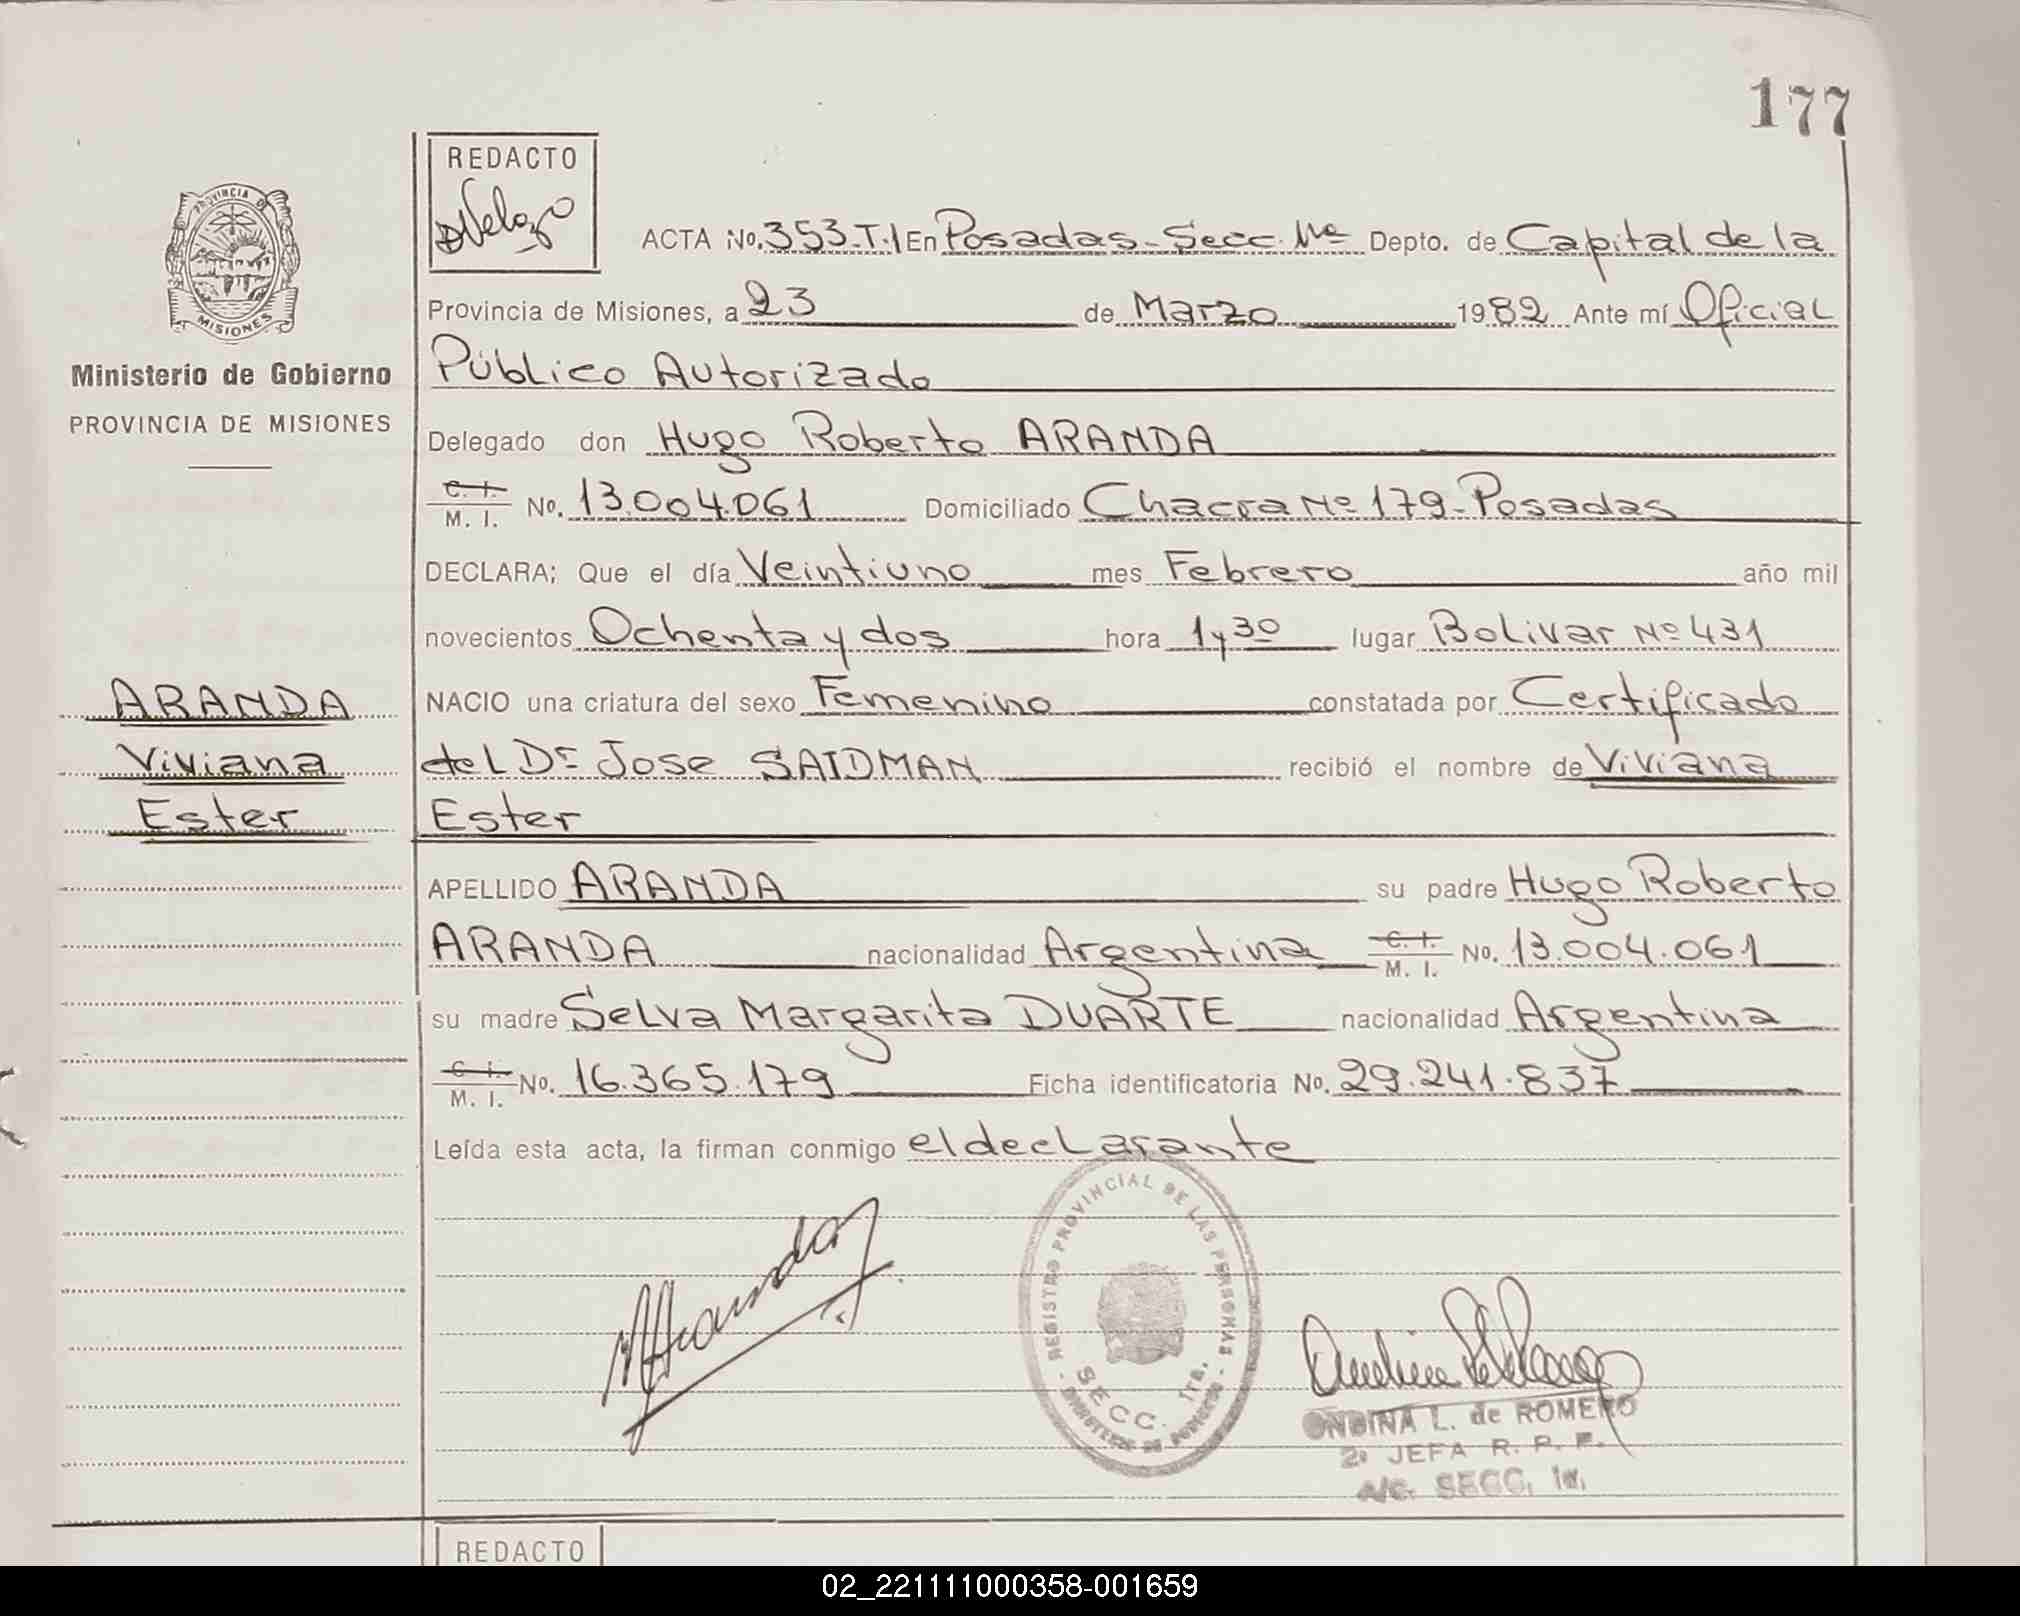 177
REDACTO
DVelozo
PROVINCIA DE
MISIONES
Ministerio de Gobierno
PROVINCIA DE MISIONES
ACTA No. 353-T.1 En Posadas-Secc. 1ra Depto. de Capital de la
Provincia de Misiones, a 23 de Marzo 1982 Ante mí Oficial
Público Autorizado
Delegado don Hugo Roberto ARANDA
C. I. M. I. No. 13.004.061 Domiciliado Chacra Nº 179-Posadas
DECLARA; Que el día Veintiuno mes Febrero año mil
novecientos Ochenta y dos hora 1 y 30 lugar Bolivar Nº 431
NACIO una criatura del sexo Femenino constatada por Certificado
del Dr Jose SAIDMAN recibió el nombre de Viviana
Ester
ARANDA
Viviana
Ester
APELLIDO ARANDA su padre Hugo Roberto
ARANDA nacionalidad Argentina C. I. M. I. No. 13.004.061
su madre Selva Margarita DUARTE nacionalidad Argentina
C. I. M. I. No. 16.365.179 Ficha identificatoria No. 29.241.837
Leída esta acta, la firman conmigo el declarante
REGISTRO PROVINCIAL DE LAS PERSONAS
SECC. 1ra.
ONDINA L. de ROMERO
2ª JEFA R. P. P.
A/C. SECC. 1ª.
REDACTO
02_221111000358-001659